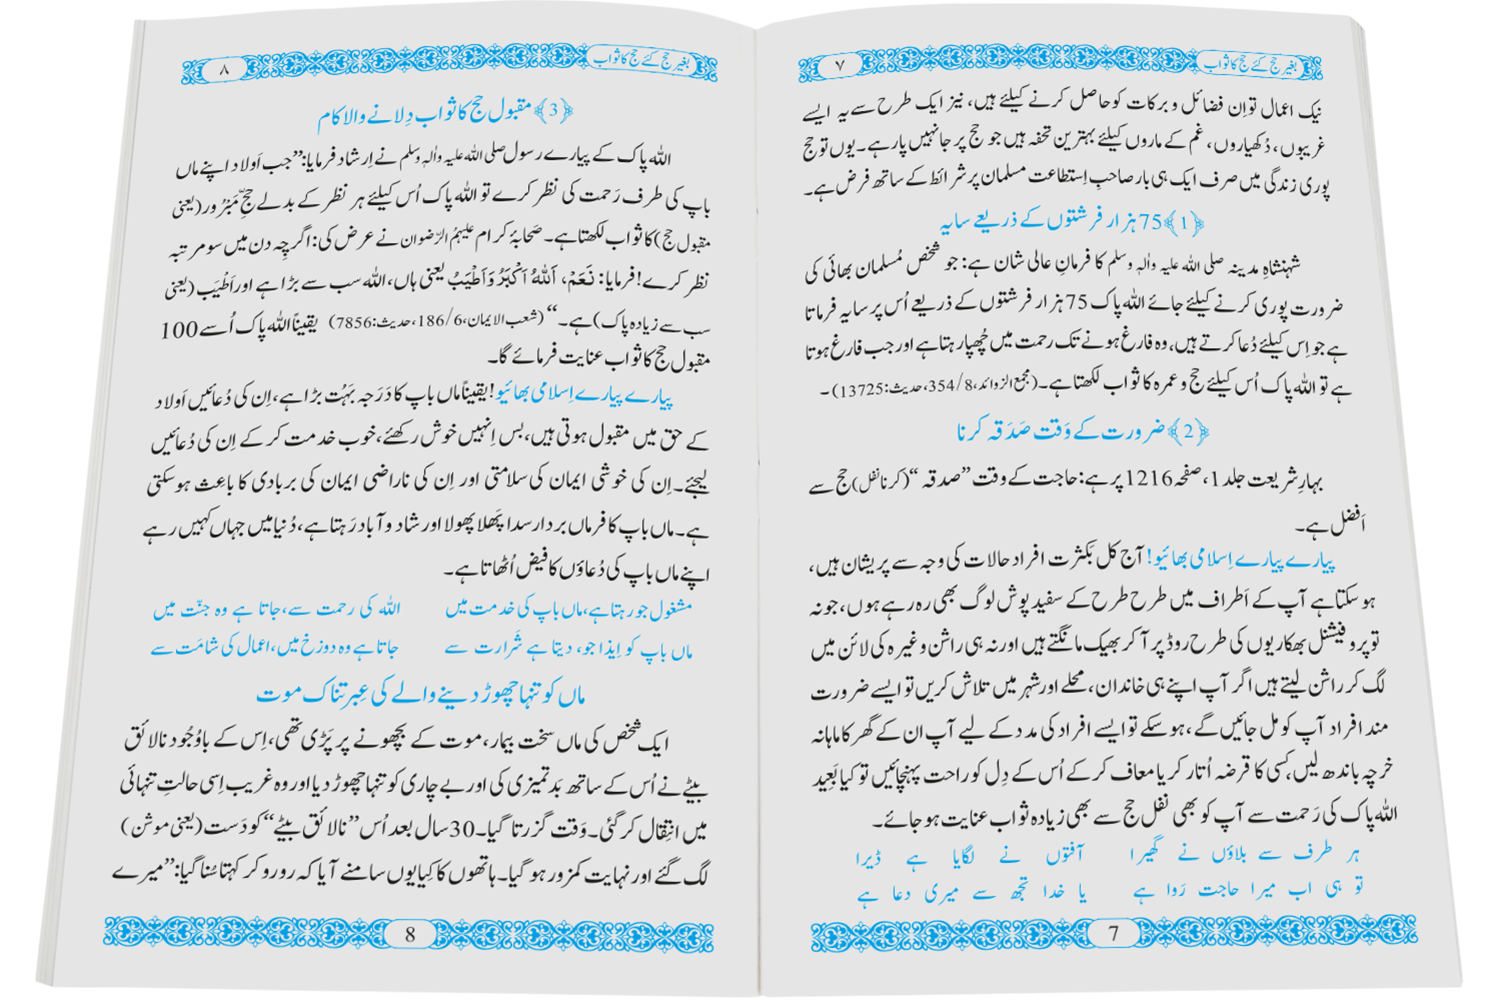 بغیر حج کئے حج کا ثواب
۷
نیک اعمال تو اِن فضائل و برکات کو حاصل کرنے کیلئے ہیں، نیز ایک طرح سے یہ ایسے
غریبوں، دُکھیاروں، غم کے ماروں کیلئے بہترین تحفہ ہیں جو حج پر جا نہیں پا رہے۔ یوں تو حج
پوری زندگی میں صرف ایک ہی بار صاحبِ اِستطاعت مسلمان پر شرائط کے ساتھ فرض ہے۔
﴿1﴾ 75 ہزار فرشتوں کے ذریعے سایہ
شہنشاہِ مدینہ صلی اللہ علیہ واٰلہٖ وسلم کا فرمانِ عالی شان ہے: جو شخص مُسلمان بھائی کی
ضرورت پوری کرنے کیلئے جائے اللہ پاک 75 ہزار فرشتوں کے ذریعے اُس پر سایہ فرماتا
ہے جو اِس کیلئے دُعا کرتے ہیں، وہ فارغ ہونے تک رحمت میں چُھپا رہتا ہے اور جب فارغ ہوتا
ہے تو اللہ پاک اُس کیلئے حج و عمرہ کا ثواب لکھتا ہے۔ (مجمع الزوائد،8/354، حدیث:13725)۔
﴿2﴾ ضرورت کے وَقت صَدَقہ کرنا
بہارِ شریعت جلد 1، صفحہ 1216 پر ہے: حاجت کے وقت ”صدقہ“ (کرنا نفل) حج سے
اَفضل ہے۔
پیارے پیارے اِسلامی بھائیو! آج کل بَکثرت افراد حالات کی وجہ سے پریشان ہیں،
ہو سکتا ہے آپ کے اَطراف میں طرح طرح کے سفید پوش لوگ بھی رہ رہے ہوں، جو نہ
تو پروفیشنل بھکاریوں کی طرح روڈ پر آ کر بھیک مانگتے ہیں اور نہ ہی راشن وغیرہ کی لائن میں
لگ کر راشن لیتے ہیں اگر آپ اپنے ہی خاندان، محلے اور شہر میں تلاش کریں تو ایسے ضرورت
مند افراد آپ کو مل جائیں گے، ہو سکے تو ایسے افراد کی مدد کے لیے آپ ان کے گھر کا ماہانہ
خرچہ باندھ لیں، کسی کا قرضہ اُتار کر یا معاف کر کے اُس کے دِل کو راحت پہنچائیں تو کیا بَعِید
اللہ پاک کی رَحمت سے آپ کو بھی نفل حج سے بھی زیادہ ثواب عنایت ہو جائے۔
ہر طرف سے بلاؤں نے گھیرا آفتوں نے لگایا ہے ڈیرا
تو ہی اب میرا حاجت رَوا ہے یا خدا تجھ سے میری دعا ہے
7
بغیر حج کئے حج کا ثواب
۸
﴿3﴾ مقبول حج کا ثواب دِلانے والا کام
اللہ پاک کے پیارے رسول صلی اللہ علیہ واٰلہٖ وسلم نے اِرشاد فرمایا: ”جب اَولاد اپنے ماں
باپ کی طرف رَحمت کی نظر کرے تو اللہ پاک اُس کیلئے ہر نظر کے بدلے حجِّ مَبْرُور (یعنی
مقبول حج) کا ثواب لکھتا ہے۔ صَحابۂ کرام علیہمُ الرّضوان نے عرض کی: اگرچِہ دن میں سو مرتبہ
نظر کرے! فرمایا: نَعَمْ، اَللهُ اَكْبَرُ وَاَطْيَبُ یعنی ہاں، اللہ سب سے بڑا ہے اور اَطْیَب (یعنی
سب سے زیادہ پاک) ہے۔“ (شعب الایمان،6/186، حدیث:7856) یقیناً اللہ پاک اُسے 100
مقبول حج کا ثواب عنایت فرمائے گا۔
پیارے پیارے اِسلامی بھائیو! یقیناً ماں باپ کا دَرَجہ بَہُت بڑا ہے، اِن کی دُعائیں اَولاد
کے حق میں مقبول ہوتی ہیں، بس اِنہیں خوش رکھئے، خوب خدمت کر کے اِن کی دُعائیں
لیجئے۔ اِن کی خوشی ایمان کی سلامتی اور اِن کی ناراضی ایمان کی بربادی کا باعِث ہو سکتی
ہے۔ ماں باپ کا فرماں بردار سدا پَھلا پھولا اور شاد و آباد رَہتا ہے، دُنیا میں جہاں کہیں رہے
اپنے ماں باپ کی دُعاؤں کا فیض اُٹھاتا ہے۔
مشغول جو رہتا ہے، ماں باپ کی خدمت میں اللہ کی رحمت سے، جاتا ہے وہ جنّت میں
ماں باپ کو اِیذا جو، دیتا ہے شَرارت سے جاتا ہے وہ دوزخ میں، اعمال کی شامَت سے
ماں کو تنہا چھوڑ دینے والے کی عِبرتناک موت
ایک شخص کی ماں سخت بیمار، موت کے بچھونے پر پَڑی تھی، اِس کے باوُجُود نالائق
بیٹے نے اُس کے ساتھ بَدتمیزی کی اور بے چاری کو تنہا چھوڑ دیا اور وہ غریب اِسی حالتِ تنہائی
میں انتِقال کر گئی۔ وَقت گزرتا گیا۔ 30 سال بعد اُس ”نالائق بیٹے“ کو دَست (یعنی موشن)
لگ گئے اور نہایت کمزور ہو گیا۔ ہاتھوں کا کِیا یوں سامنے آیا کہ رو رو کر کہتا سُنا گیا: ”میرے
8